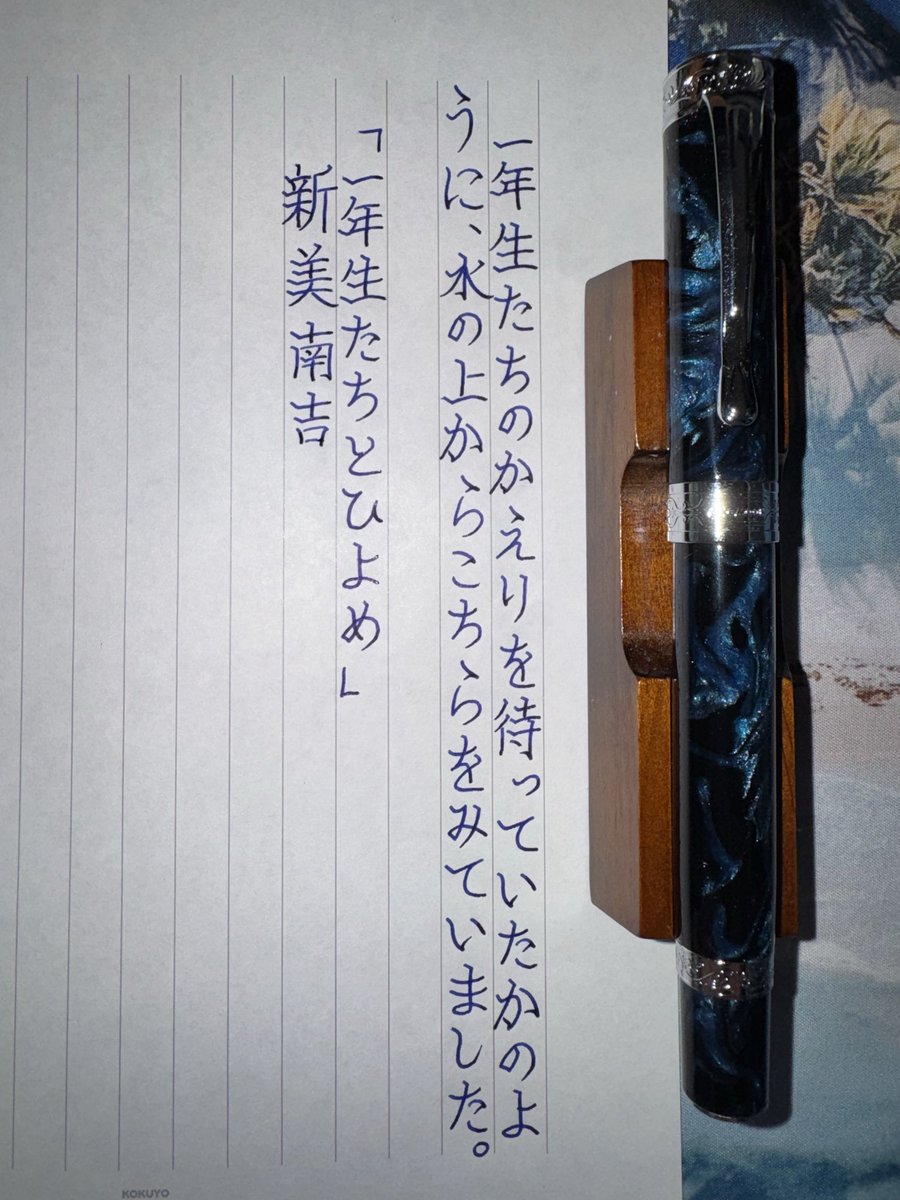 一年生たちのかえりを待っていたかのよ
うに、水の上からこちらをみていました。
「一年生たちとひよめ」
新美南吉
KOKUYO